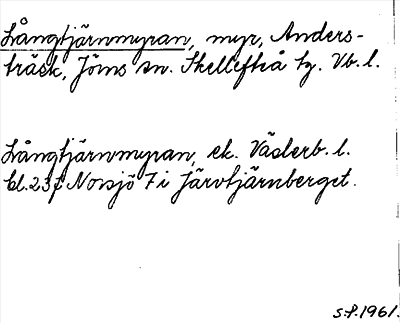 Långtjärnmyran, myr, Anders-
träsk, Jörns sn. Skellefteå tg. Vb. l.
Långtjärnmyran, ek. Västerb. l.
bl. 23f Norsjö 7 i Järvtjärnberget.
S.P. 1961.